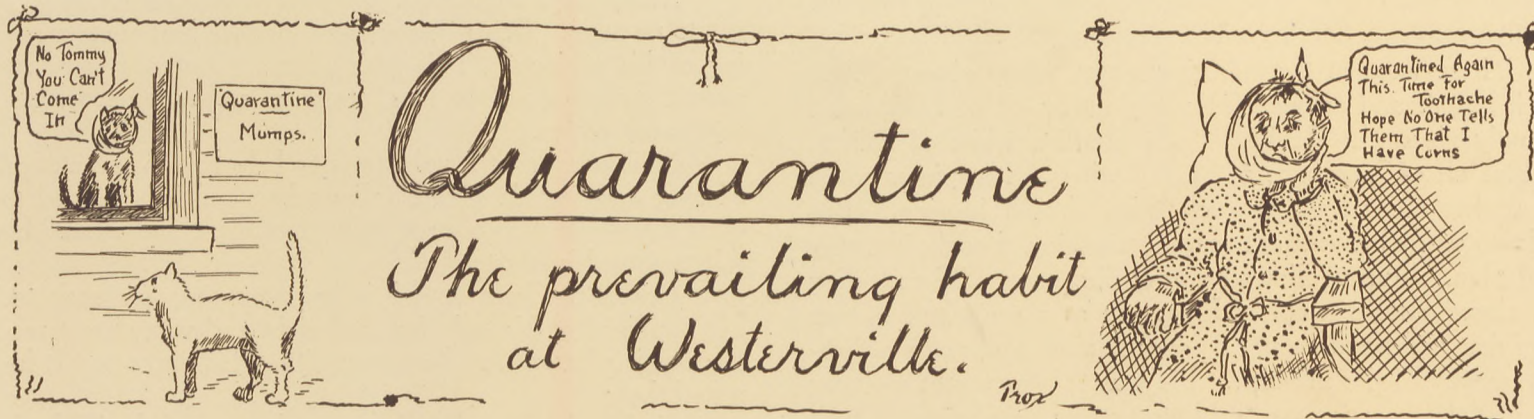 No Tommy
You Can't
Come
In
Quarantine
Mumps.
Quarantine
The prevailing habit
at Westerville.
Quarantined Again
This. Time For
Toothache
Hope No One Tells
Them That I
Have Corns